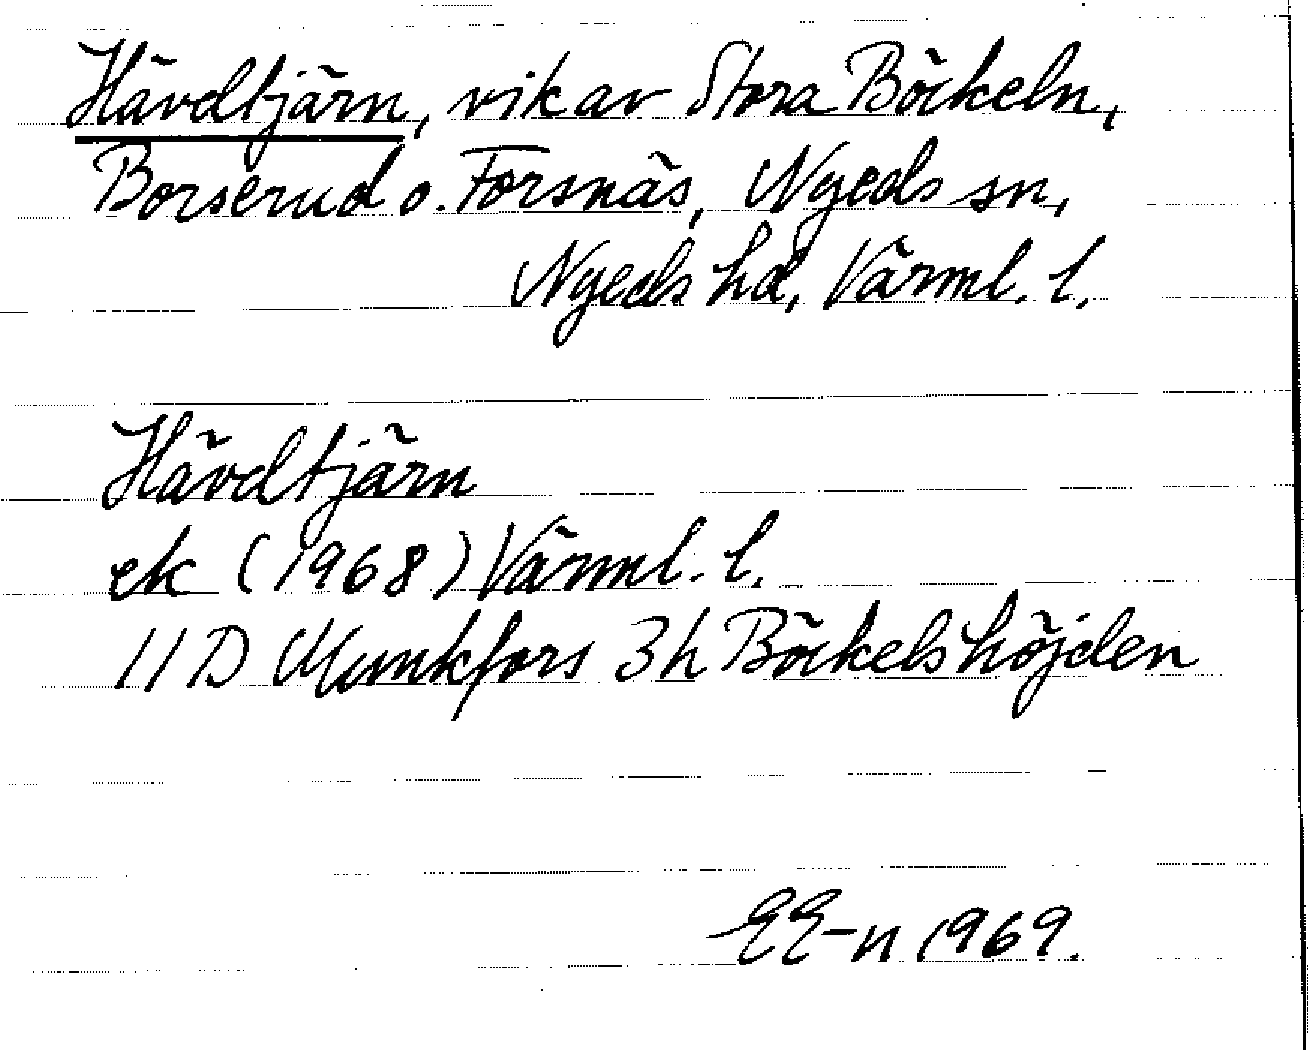 Hävdtjärn, vik av Stora Böckeln,
Borserud o. Forsnäs, Nyeds sn,
Nyeds hd, Värml. l.
Hävdtjärn
ek (1968) Värml. l.
11 D Munkfors 3h Böckelshöjden
EE-n 1969.